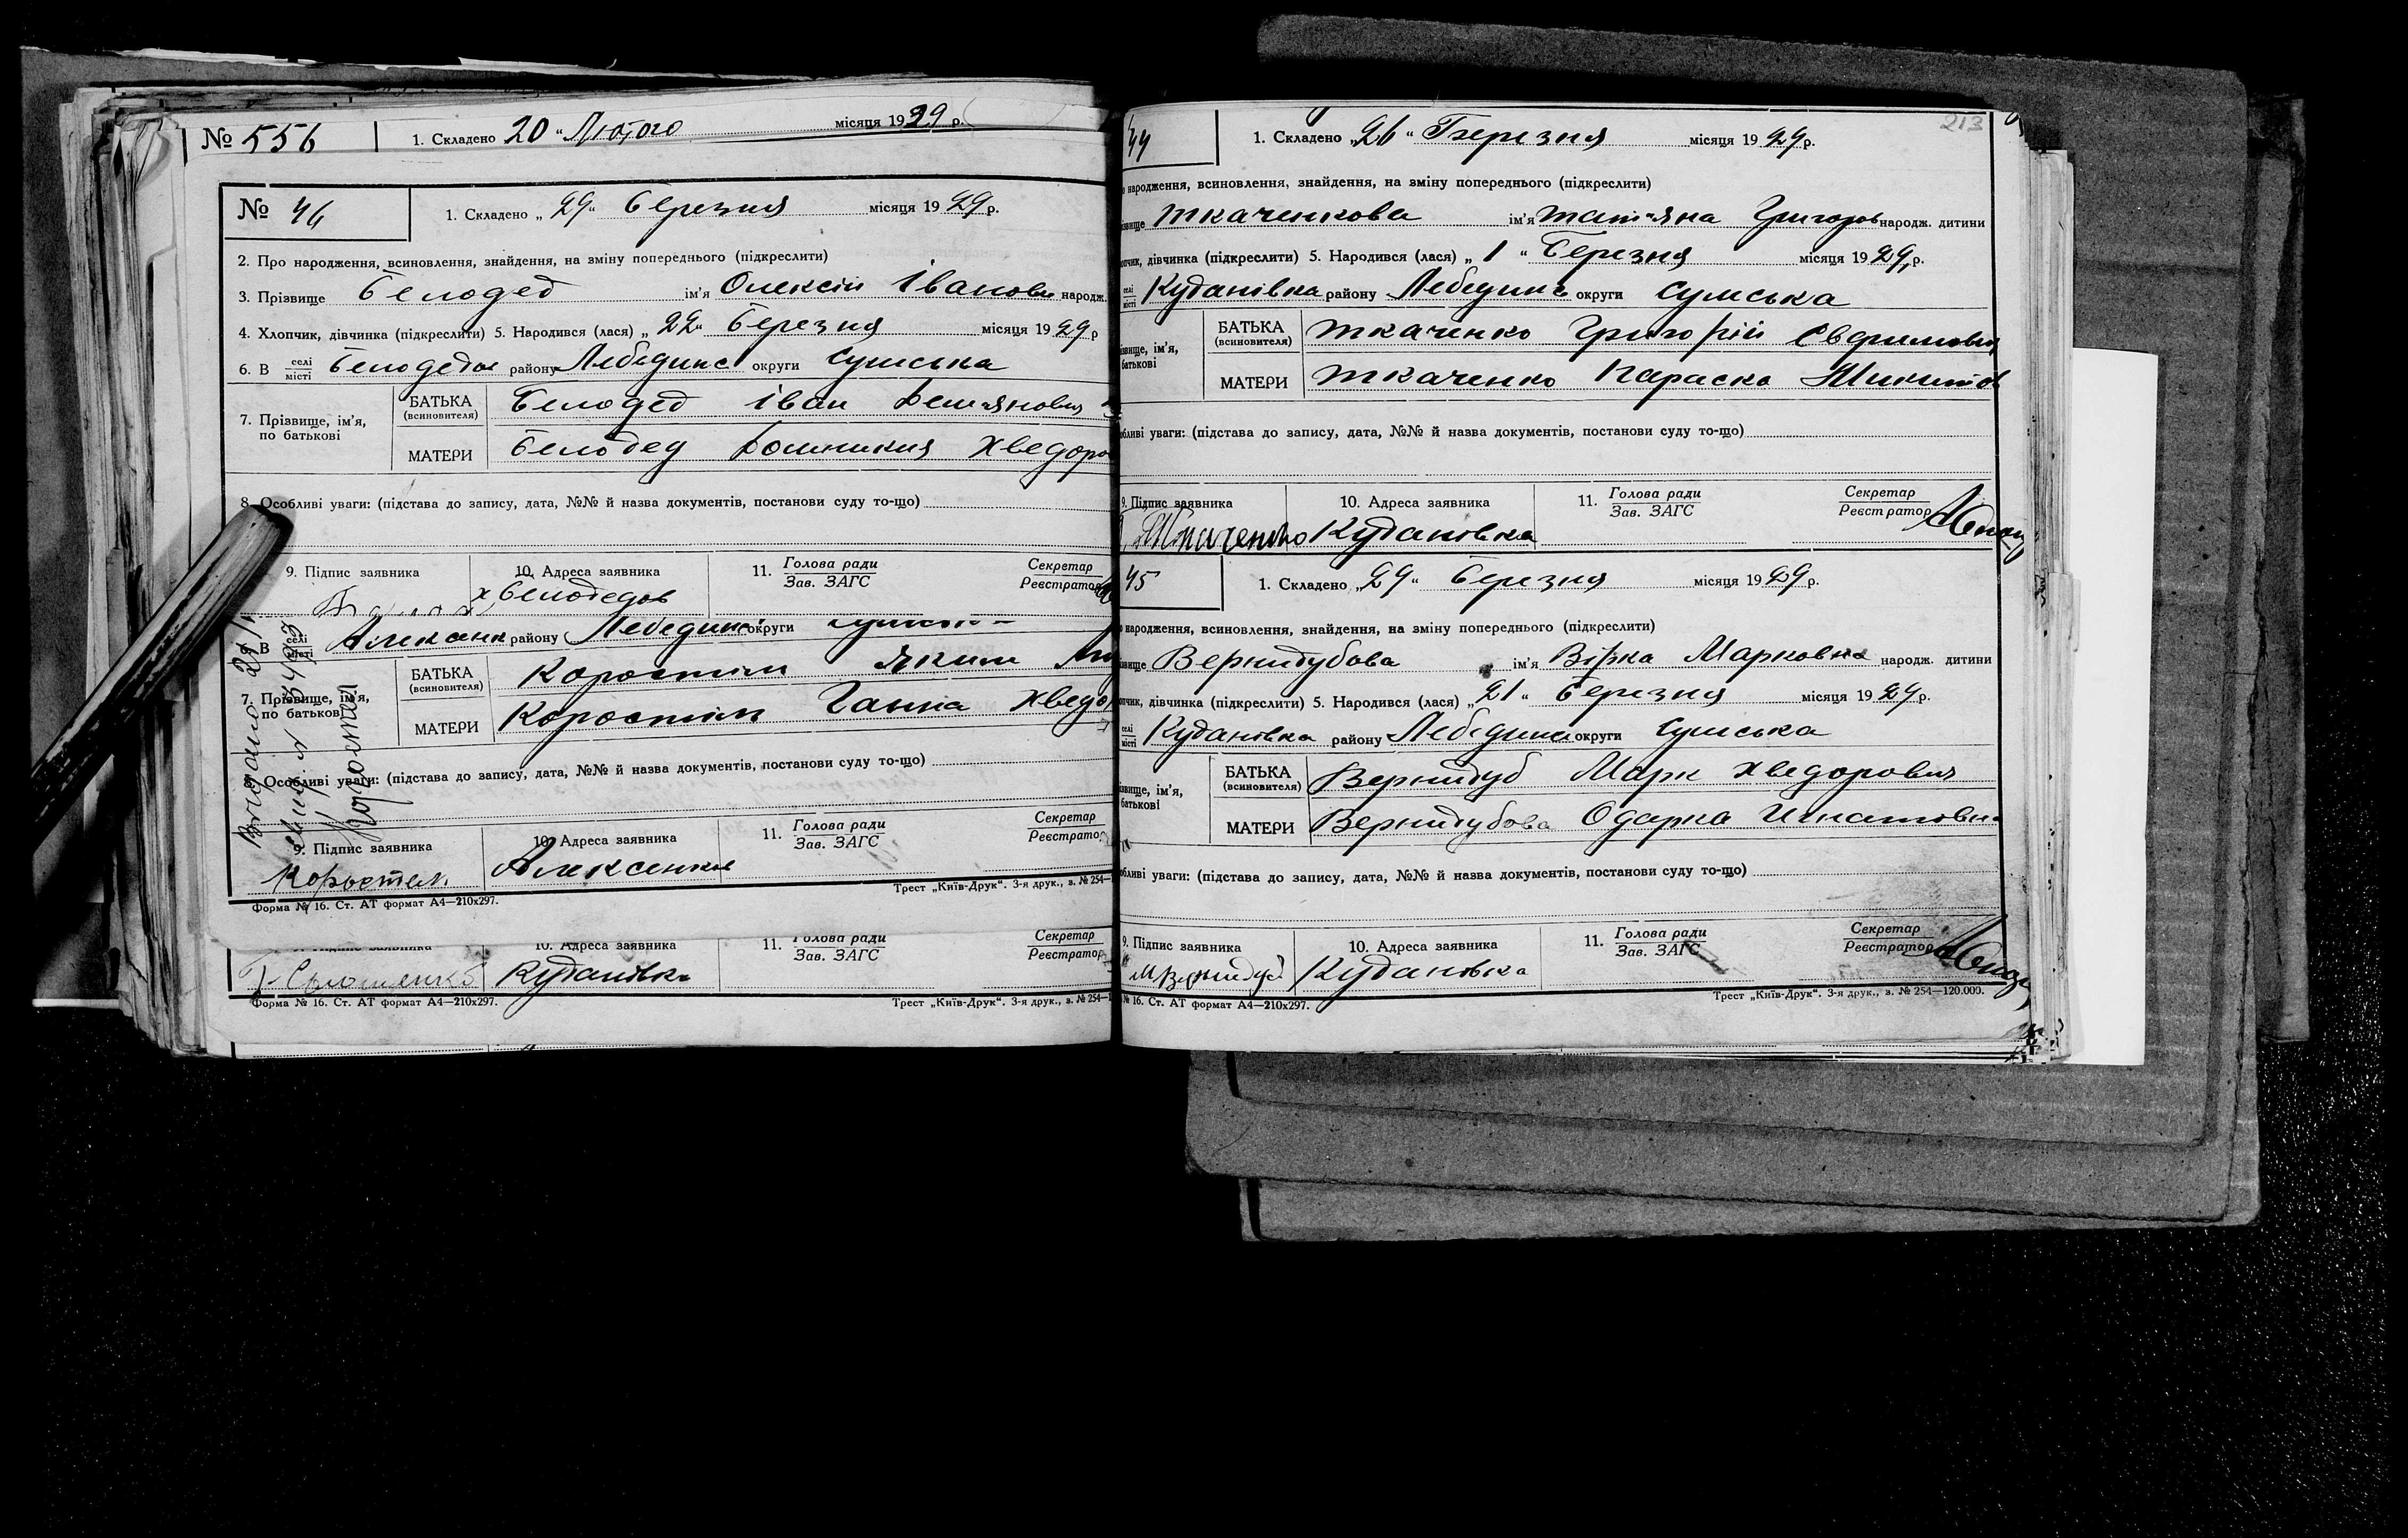 № 556 1. Складено 20 „ Лютого місяця 1929 р.
№ 46 1. Складено „ 29 “ березня місяця 1929 р.
2. Про народження, всиновлення, знайдення, на зміну попереднього (підкреслити)
3. Прізвище Белодед ім'я Олексій Іванович народж.
4. Хлопчик, дівчинка (підкреслити) 5. Народився (лася) „ 22 “ березня місяця 1929 р
6. В селі місті Белодедов району Лебединс округи сумська
7. Прізвище, ім'я, по батькові
БАТЬКА (всиновителя) Белодед Іван Демянович
МАТЕРИ Белодед Домникия Хведоро
8. Особливі уваги: (підстава до запису, дата, №№ й назва документів, постанови суду то-що)
9. Підпис заявника 10. Адреса заявника 11. Голова ради Зав. ЗАГС Секретар Реєстратор
х Белодедов
6. В селі місті Алексенк району Лебединс округи
7. Прізвище, ім'я, по батькові
БАТЬКА (всиновителя) Коростіль Яким
МАТЕРИ Коростіль Ганна Хведо
8. Особливі уваги: (підстава до запису, дата, №№ й назва документів, постанови суду то-що)
9. Підпис заявника 10. Адреса заявника 11. Голова ради Зав. ЗАГС Секретар Реєстратор
Коростел Алексенков
Форма № 16. Ст. АТ формат А4—210х297. Трест „Київ-Друк“. 3-я друк., з. № 254—1
10. Адреса заявника 11. Голова ради Зав. ЗАГС Секретар Реєстратор
Кудановка
Форма № 16. Ст. АТ формат А4—210х297. Трест „Київ-Друк“. 3-я друк., з. № 254—1
213
44 1. Складено „ 26 “ Березня місяця 1929 р.
народження, всиновлення, знайдення, на зміну попереднього (підкреслити)
звище Ткаченкова ім'я Тат'яна Григоров народж. дитини
пчик, дівчинка (підкреслити) 5. Народився (лася) „ 1 “ Березня місяця 1929 р.
селі місті Кудановка району Лебединс округи сумська
ізвище, ім'я, батькові
БАТЬКА (всиновителя) Ткаченко Григорій Євфимович
МАТЕРИ Ткаченко Параска Микитов
обливі уваги: (підстава до запису, дата, №№ й назва документів, постанови суду то-що)
9. Підпис заявника 10. Адреса заявника 11. Голова ради Зав. ЗАГС Секретар Реєстратор
Ткаченко Кудановка
45 1. Складено „ 29 “ березня місяця 1929 р.
народження, всиновлення, знайдення, на зміну попереднього (підкреслити)
звище Вернидубова ім'я Вірка Марковна народж. дитини
пчик, дівчинка (підкреслити) 5. Народився (лася) „ 21 “ березня місяця 1929 р.
селі місті Кудановка району Лебединс округи сумська
ізвище, ім'я, батькові
БАТЬКА (всиновителя) Вернидуб Марк Хведорович
МАТЕРИ Вернидубова Одарка Игнатовна
обливі уваги: (підстава до запису, дата, №№ й назва документів, постанови суду то-що)
9. Підпис заявника 10. Адреса заявника 11. Голова ради Зав. ЗАГС Секретар Реєстратор
М Вернидуб Кудановка
№ 16. Ст. АТ формат А4—210х297. Трест „Київ-Друк“. 3-я друк., з. № 254—120.000.